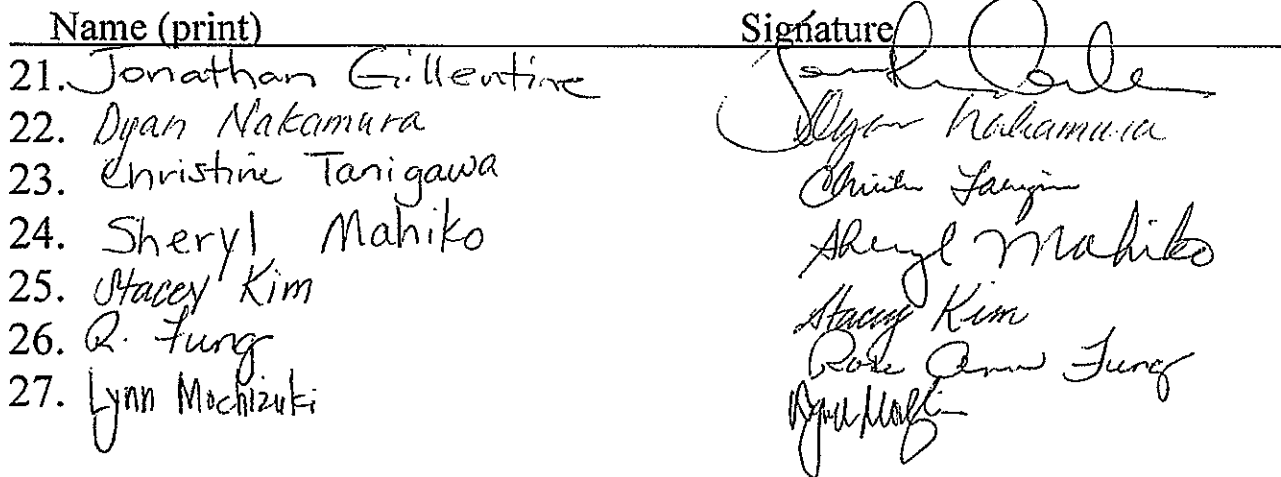 Name (print) Signature
21. Jonathan Gillentine
22. Dyan Nakamura Dyan Nakamura
23. Christine Tanigawa
24. Sheryl Mahiko Sheryl Mahiko
25. Stacey Kim Stacey Kim
26. R. Fung Rose Ann Fung
27. Lynn Mochizuki